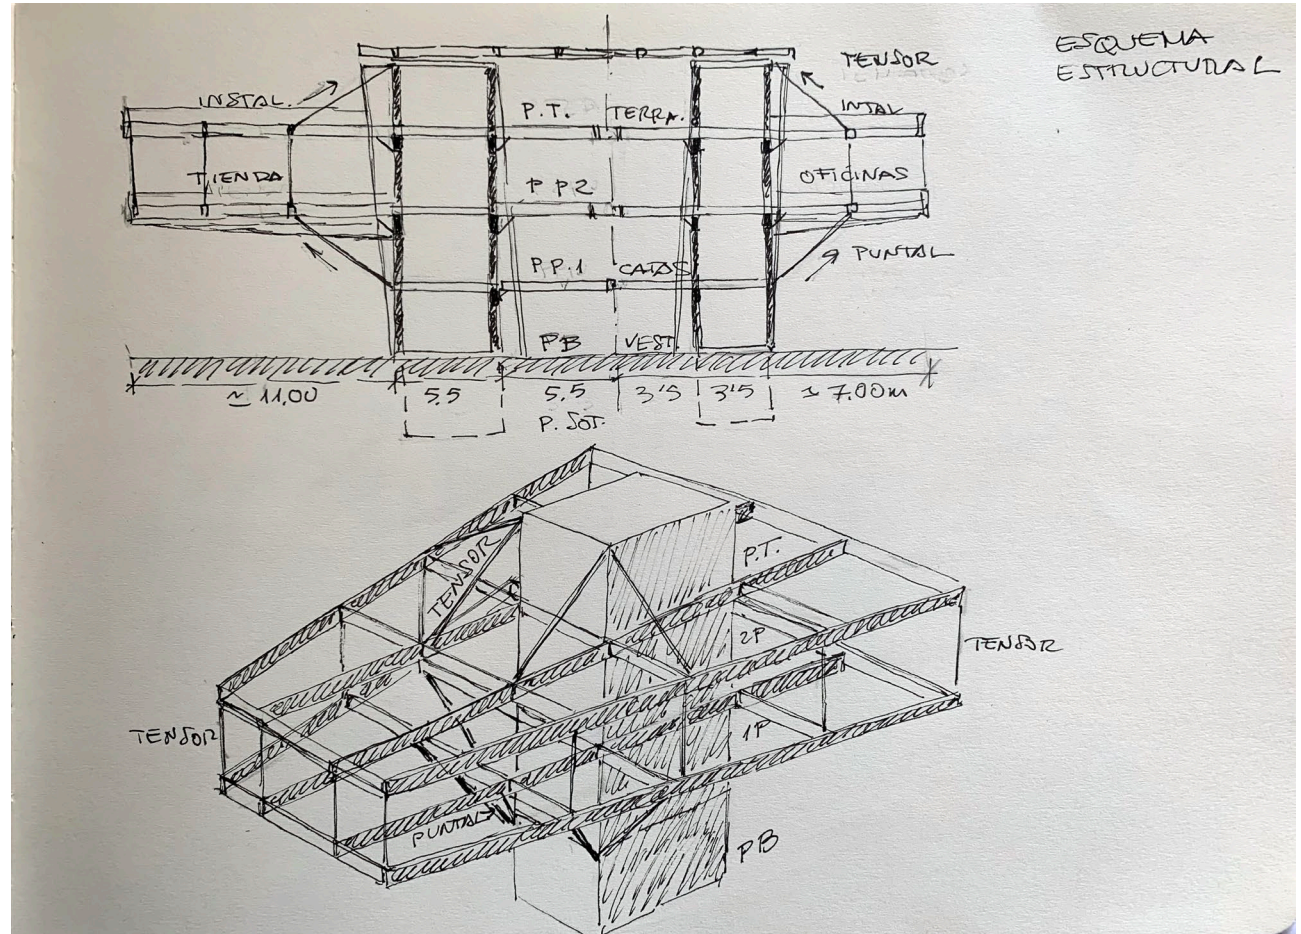 ESQUEMA
ESTRUCTURAL
TENSOR
INSTAL.
INTAL
P.T. TERRA.
TIENDA
P P2
OFICINAS
P P.1 CATAS
PUNTAL
PB VEST
≃ 11,00 5,5 5,5 3'5 3'5 ≃ 7.00m
P. SOT.
TENSOR
P.T.
2P
TENSOR
TENSOR
1P
PUNTAL
PB